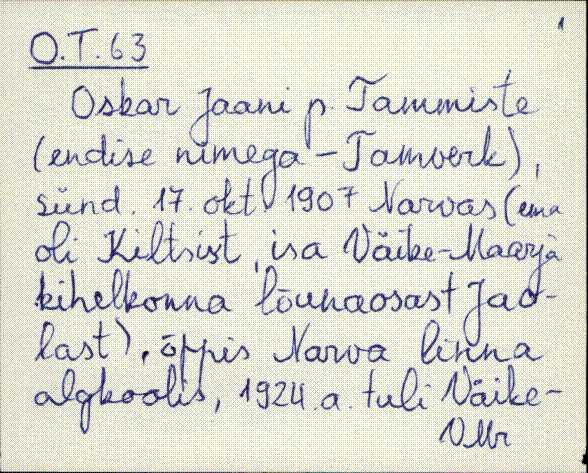 1
O.T.63
Oskar Jaani p. Tammiste
(endise nimega - Tamverk),
sünd. 17. okt 1907 Narvas (ema
oli Kiltsist, isa Väike-Maarja
kihelkonna lõunaosast Jao-
last), õppis Narva linna
algkoolis, 1924.a. tuli Väike-
VMr